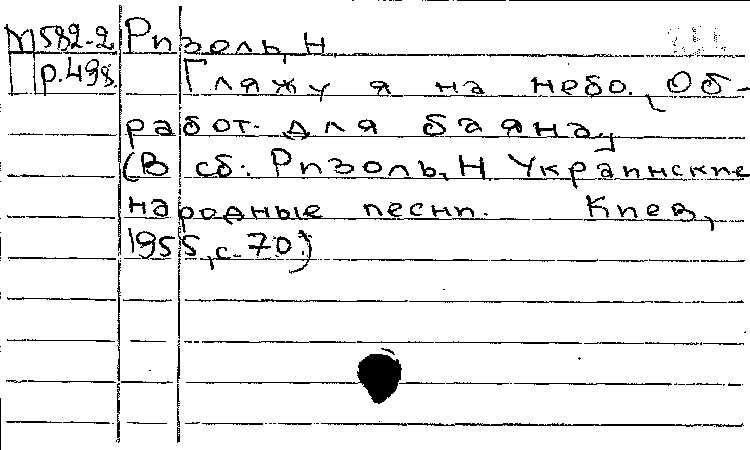 М582-2 Ризоль, Н.
р.498. Гляжу я на небо. [Об-
работ. для баяна]
(В сб: Ризоль, Н Украинские
народные песни. Киев,
1955, с. 70.)